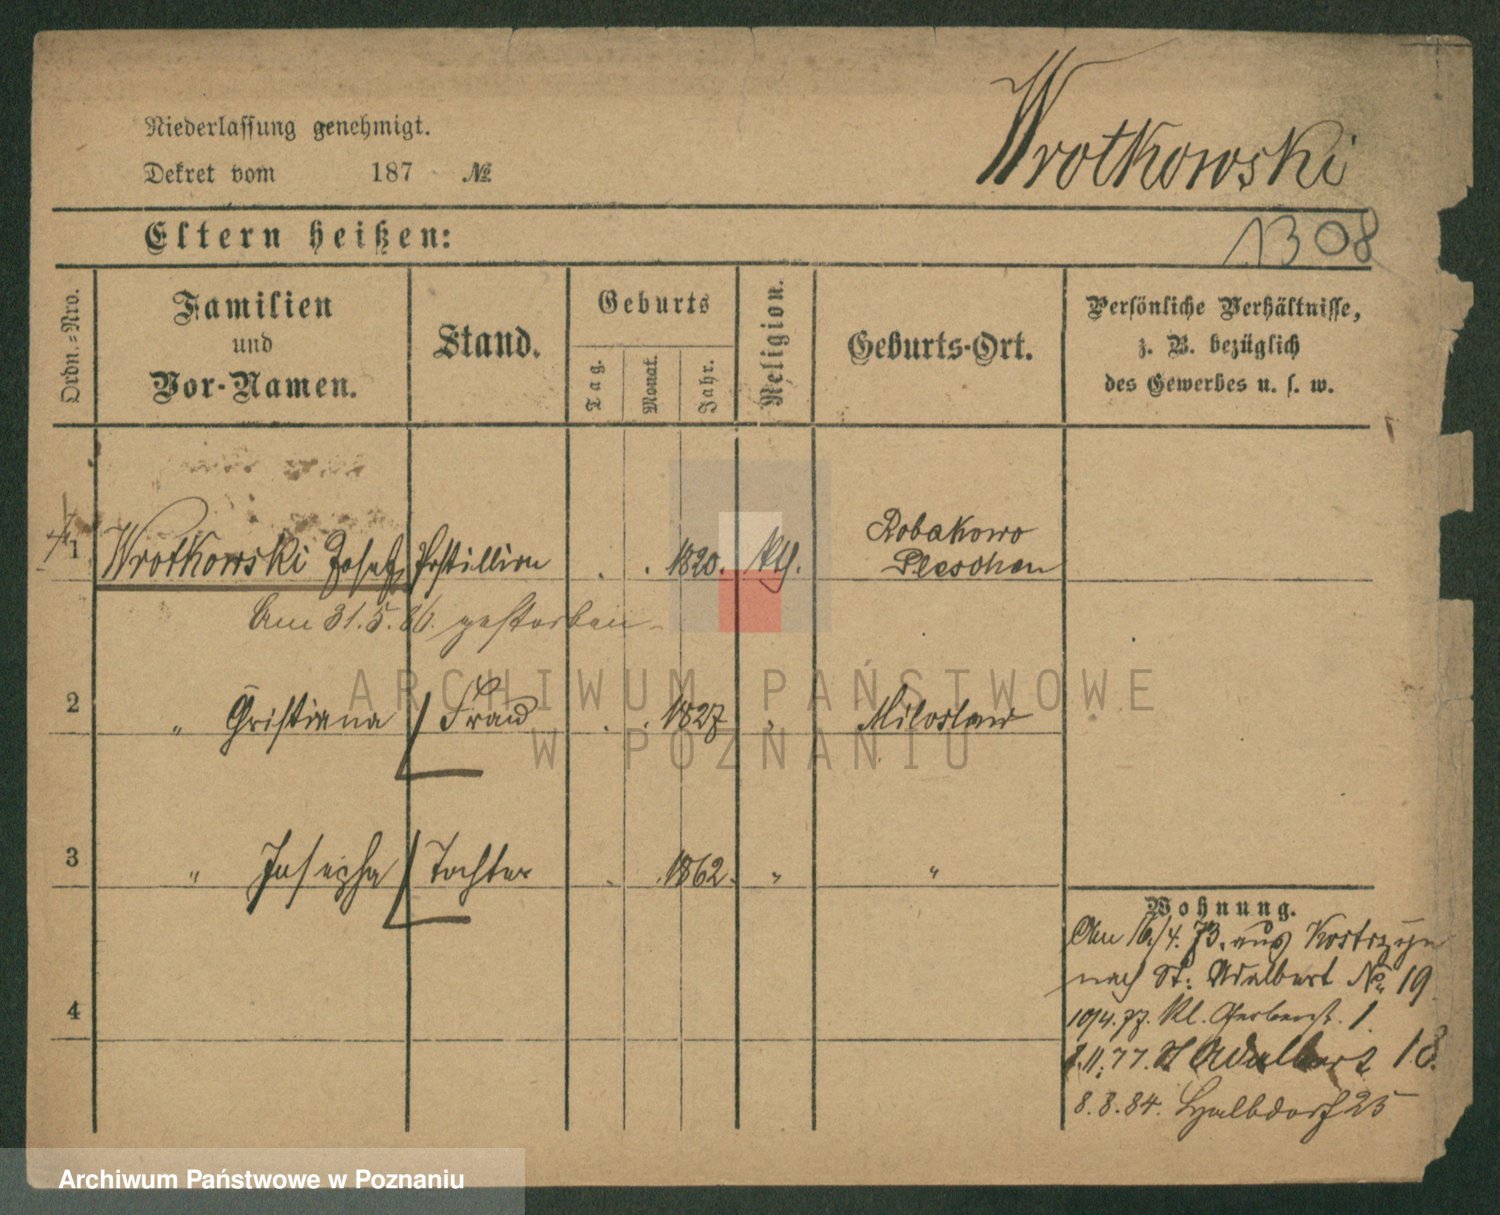 Wrotkowski
Niederlassung genehmigt.
Dekret vom 187 №
1308
Eltern heißen:
Ordn.=Nro.
Familien
und
Vor-Namen.
Stand.
Geburts
Tag.
Monat.
Jahr.
Religion.
Geburts-Ort.
Persönliche Verhältnisse,
z. B. bezüglich
des Gewerbes u. s. w.
1 Wrotkowski Josef Postillion . . 1820. kth. Robakowo
Pleschen
Am 31.5.86. gestorben
2 " Christiana Frau . . 1827 " Miloslaw
3 " Josepha Tochter . . 1862. " "
4
Wohnung.
Am 16/4. 73. aus Kostrzyn
nach St: Adalbert No 19
10/4. 77. Kl. Gerberstr. 1.
8.11.77. St Adalbert 18.
8.8.84. Halbdorf 25
ARCHIWUM PAŃSTWOWE
W POZNANIU
Archiwum Państwowe w Poznaniu